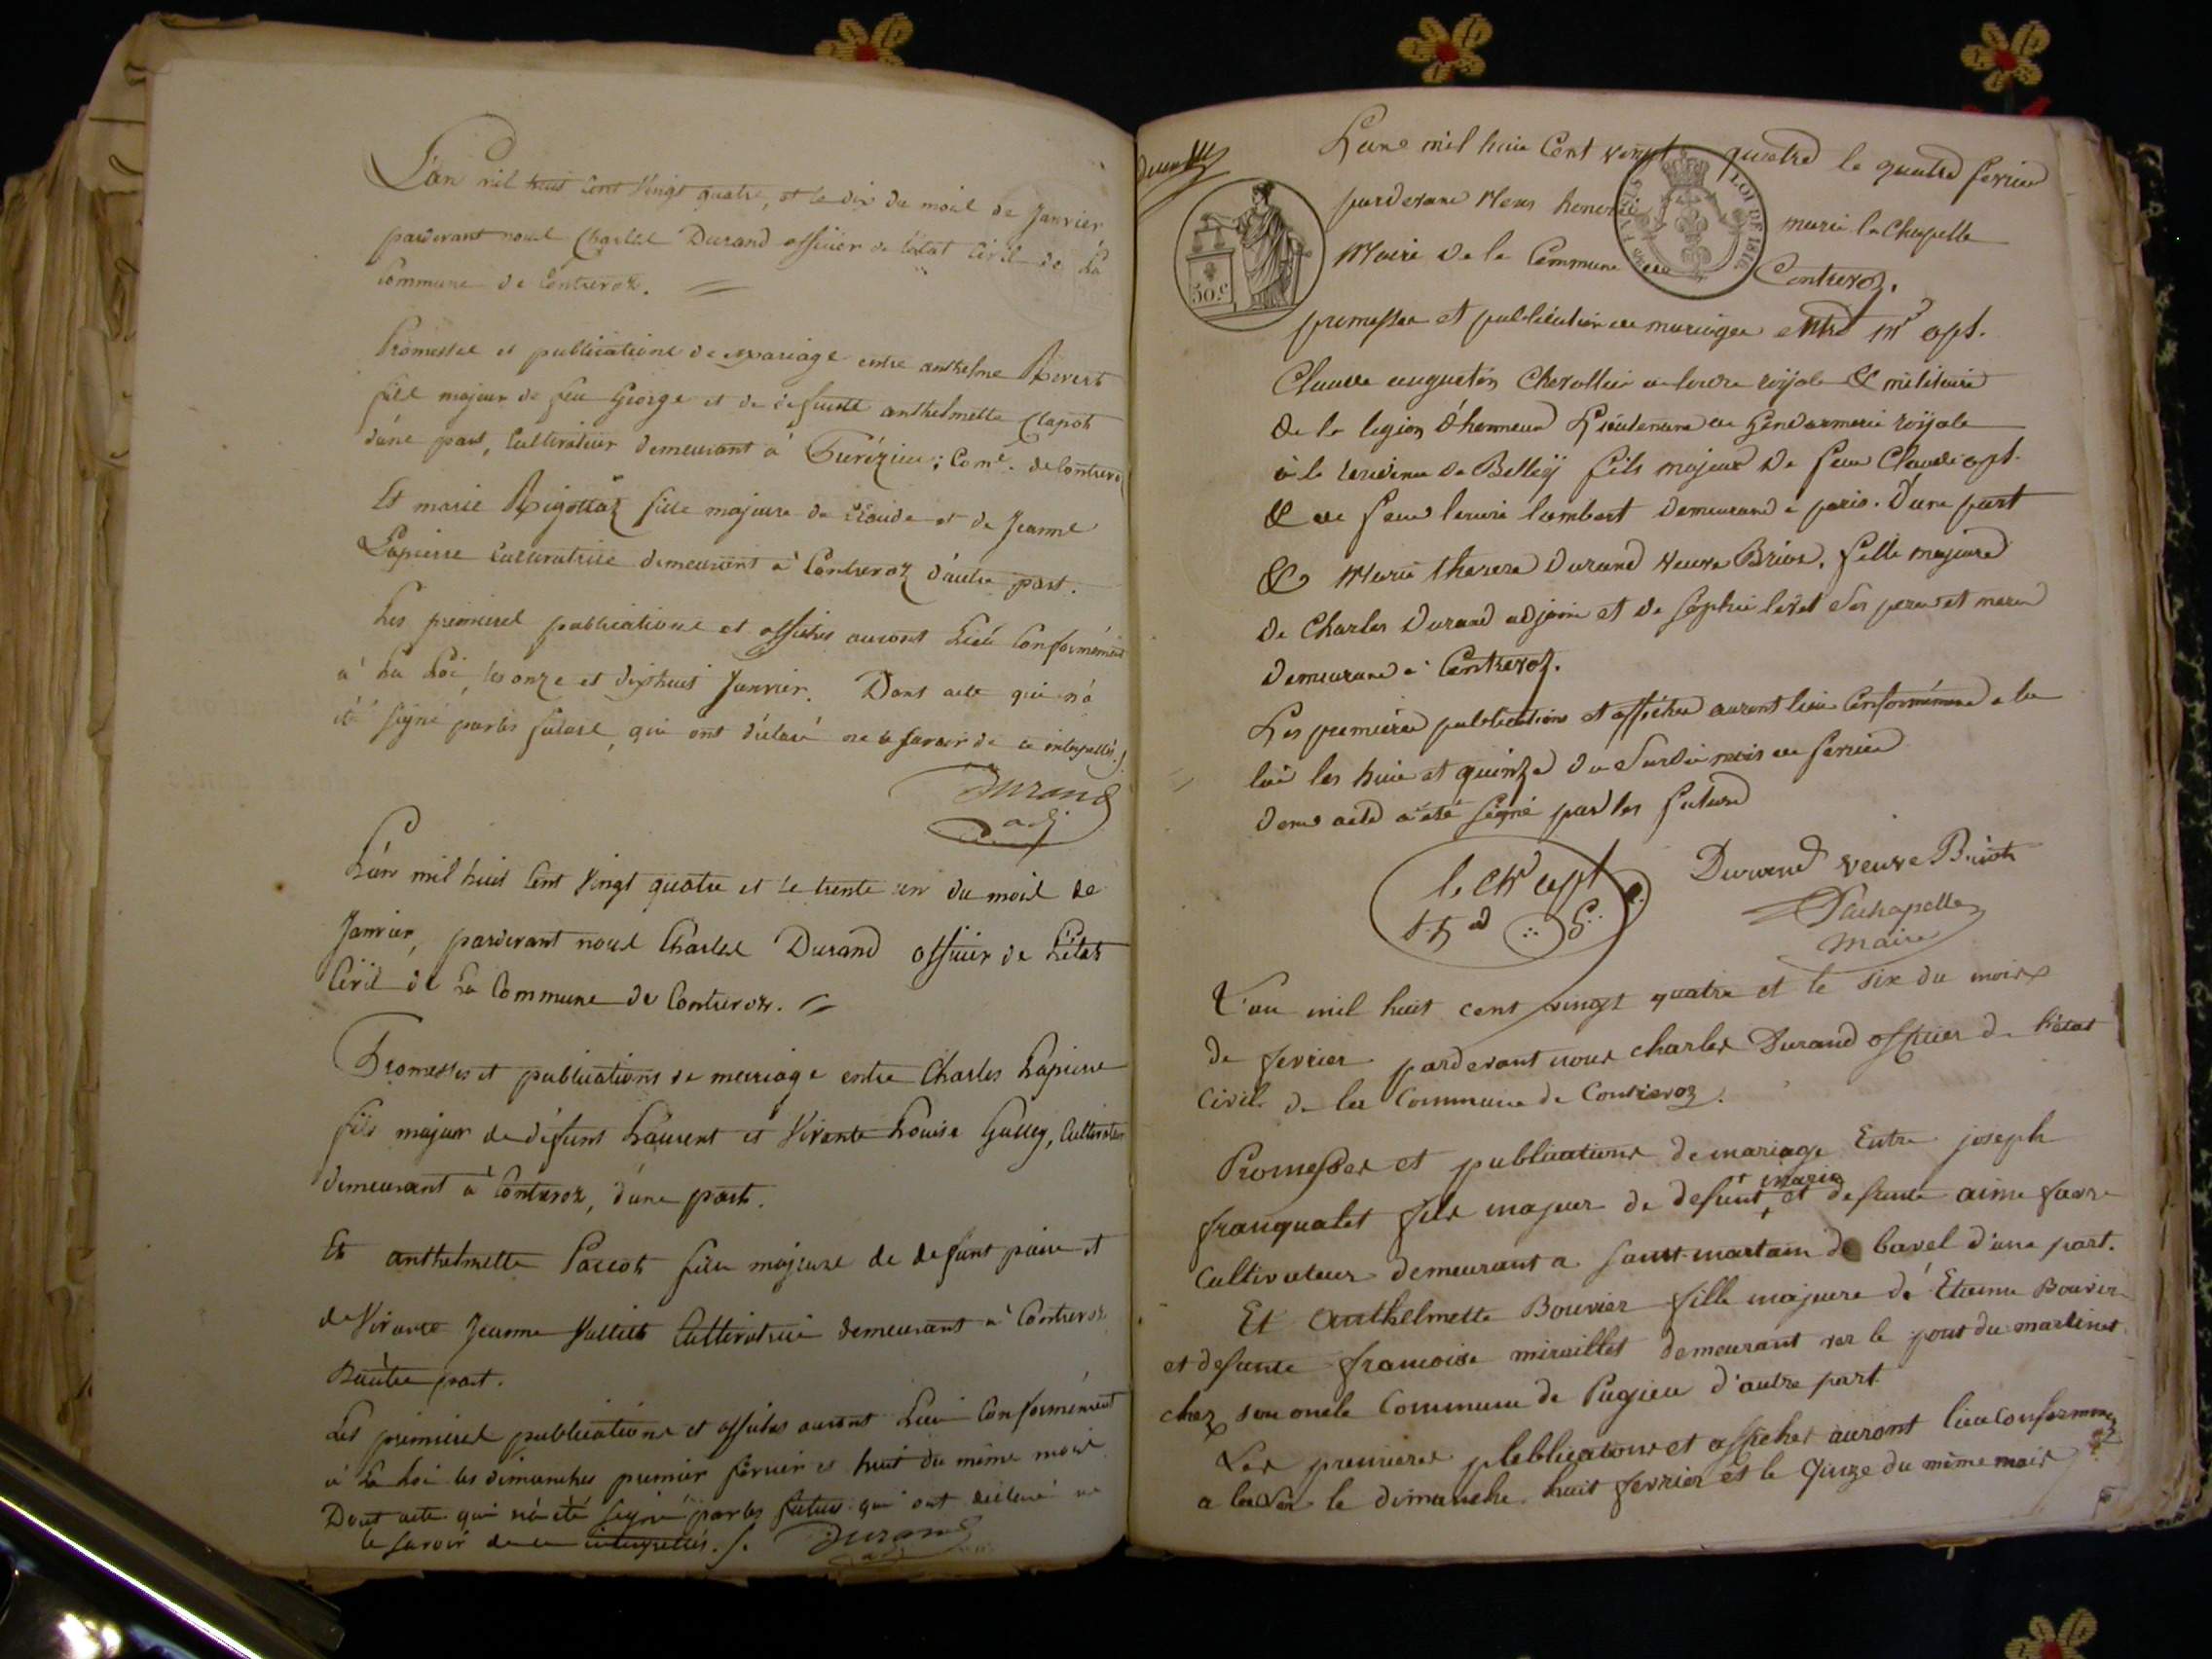 L'an mil huit cent vingt quatre, et le dix du mois de Janvier
pardevant nous Charles Durand officier de l'état civil de la
Commune de Contrevoz.
Promesses et publications de mariage entre anthelme Revert
fils majeur de feu George et de defunte anthelmette Clapot
d'une part, cultivateur demeurant à
Et marie Rigottaz fille majeure de Claude et de Jeanne
Lapierre Cultivatrice demeurant à Contrevoz d'autre part.
Les premieres publications et affiches auront Lieu Conformément
à La Loi, les onze et dixhuit Janvier. Dont acte qui n'a
été signé par les futurs, qui ont déclaré ne le savoir de ce interpellés.
Durand
adj.
L'an mil huit cent vingt quatre et le trente un du mois de
Janvier, pardevant nous Charles Durand officier de L'état
Civil de La Commune de Contrevoz.
Promesses et publications de mariage entre Charles Lapierre
fils majeur de défunt Laurent et Vivante Louise Gulley, Cultivateur
demeurant à Contrevoz, d'une part.
Et anthelmette Paccot fille majeure de defunt pierre et
de Vivante Jeanne Cultivatrice demeurant à Contrevoz
D'autre part.
Les premieres publications et affiches auront Lieu Conformément
à La Loi les dimanches premier février et huit du même mois
Dont acte qui n'a été signé par les futurs qui ont déclaré ne
le savoir de ce interpellés. Durand
L'ane mil huit Cent vingt quatre le quatre fevrier
pardevant Nous honoré marie la Chapelle
Maire de la Commune de Contrevoz.
50.c
LOI DE 1816
promesse et publication de mariage entre mr opt.
Claude augustin Chevallier de lordre royale & militaire
de la legion d'honneur Lieutenant de gendarmerie royale
à la residence de Belley fils majeur de feu Claude opt.
& de feue lambert demeurant a paris. D'une part
& Marie therese Durand veuve Briot. fille majeure
de Charles Durand adjoint et de Sophie ses pere et mere
demeurant a Contrevoz.
Les premiere publications et affiches auront lieu Conformément a la
loi les huit et quinze du Susdit mois de fevrier
dont acte a été Signé par les futurs
Durand veuve Briot
Lachapelle
maire
L'an mil huit cent vingt quatre et le six du mois
de fevrier pardevant nous charles Durand officier de l'état
Civil de la Commune de Contrevoz.
Promesses et publications de mariage Entre joseph
franqualet fils majeur de defunt marie et defunte aime favre
Cultivateur demeurant a saint martain de bavel d'une part.
Et anthelmette Bouvier fille majeure dé Etienne Bouvier
et defunte francoise miraillet demeurant ver le pont du martinet
chez son oncle Commune de Pugieu d'autre part.
Les premieres plebliations et affiches auront lieu conformement
a la loi le dimanche huit fevrier et le Quize du même mois